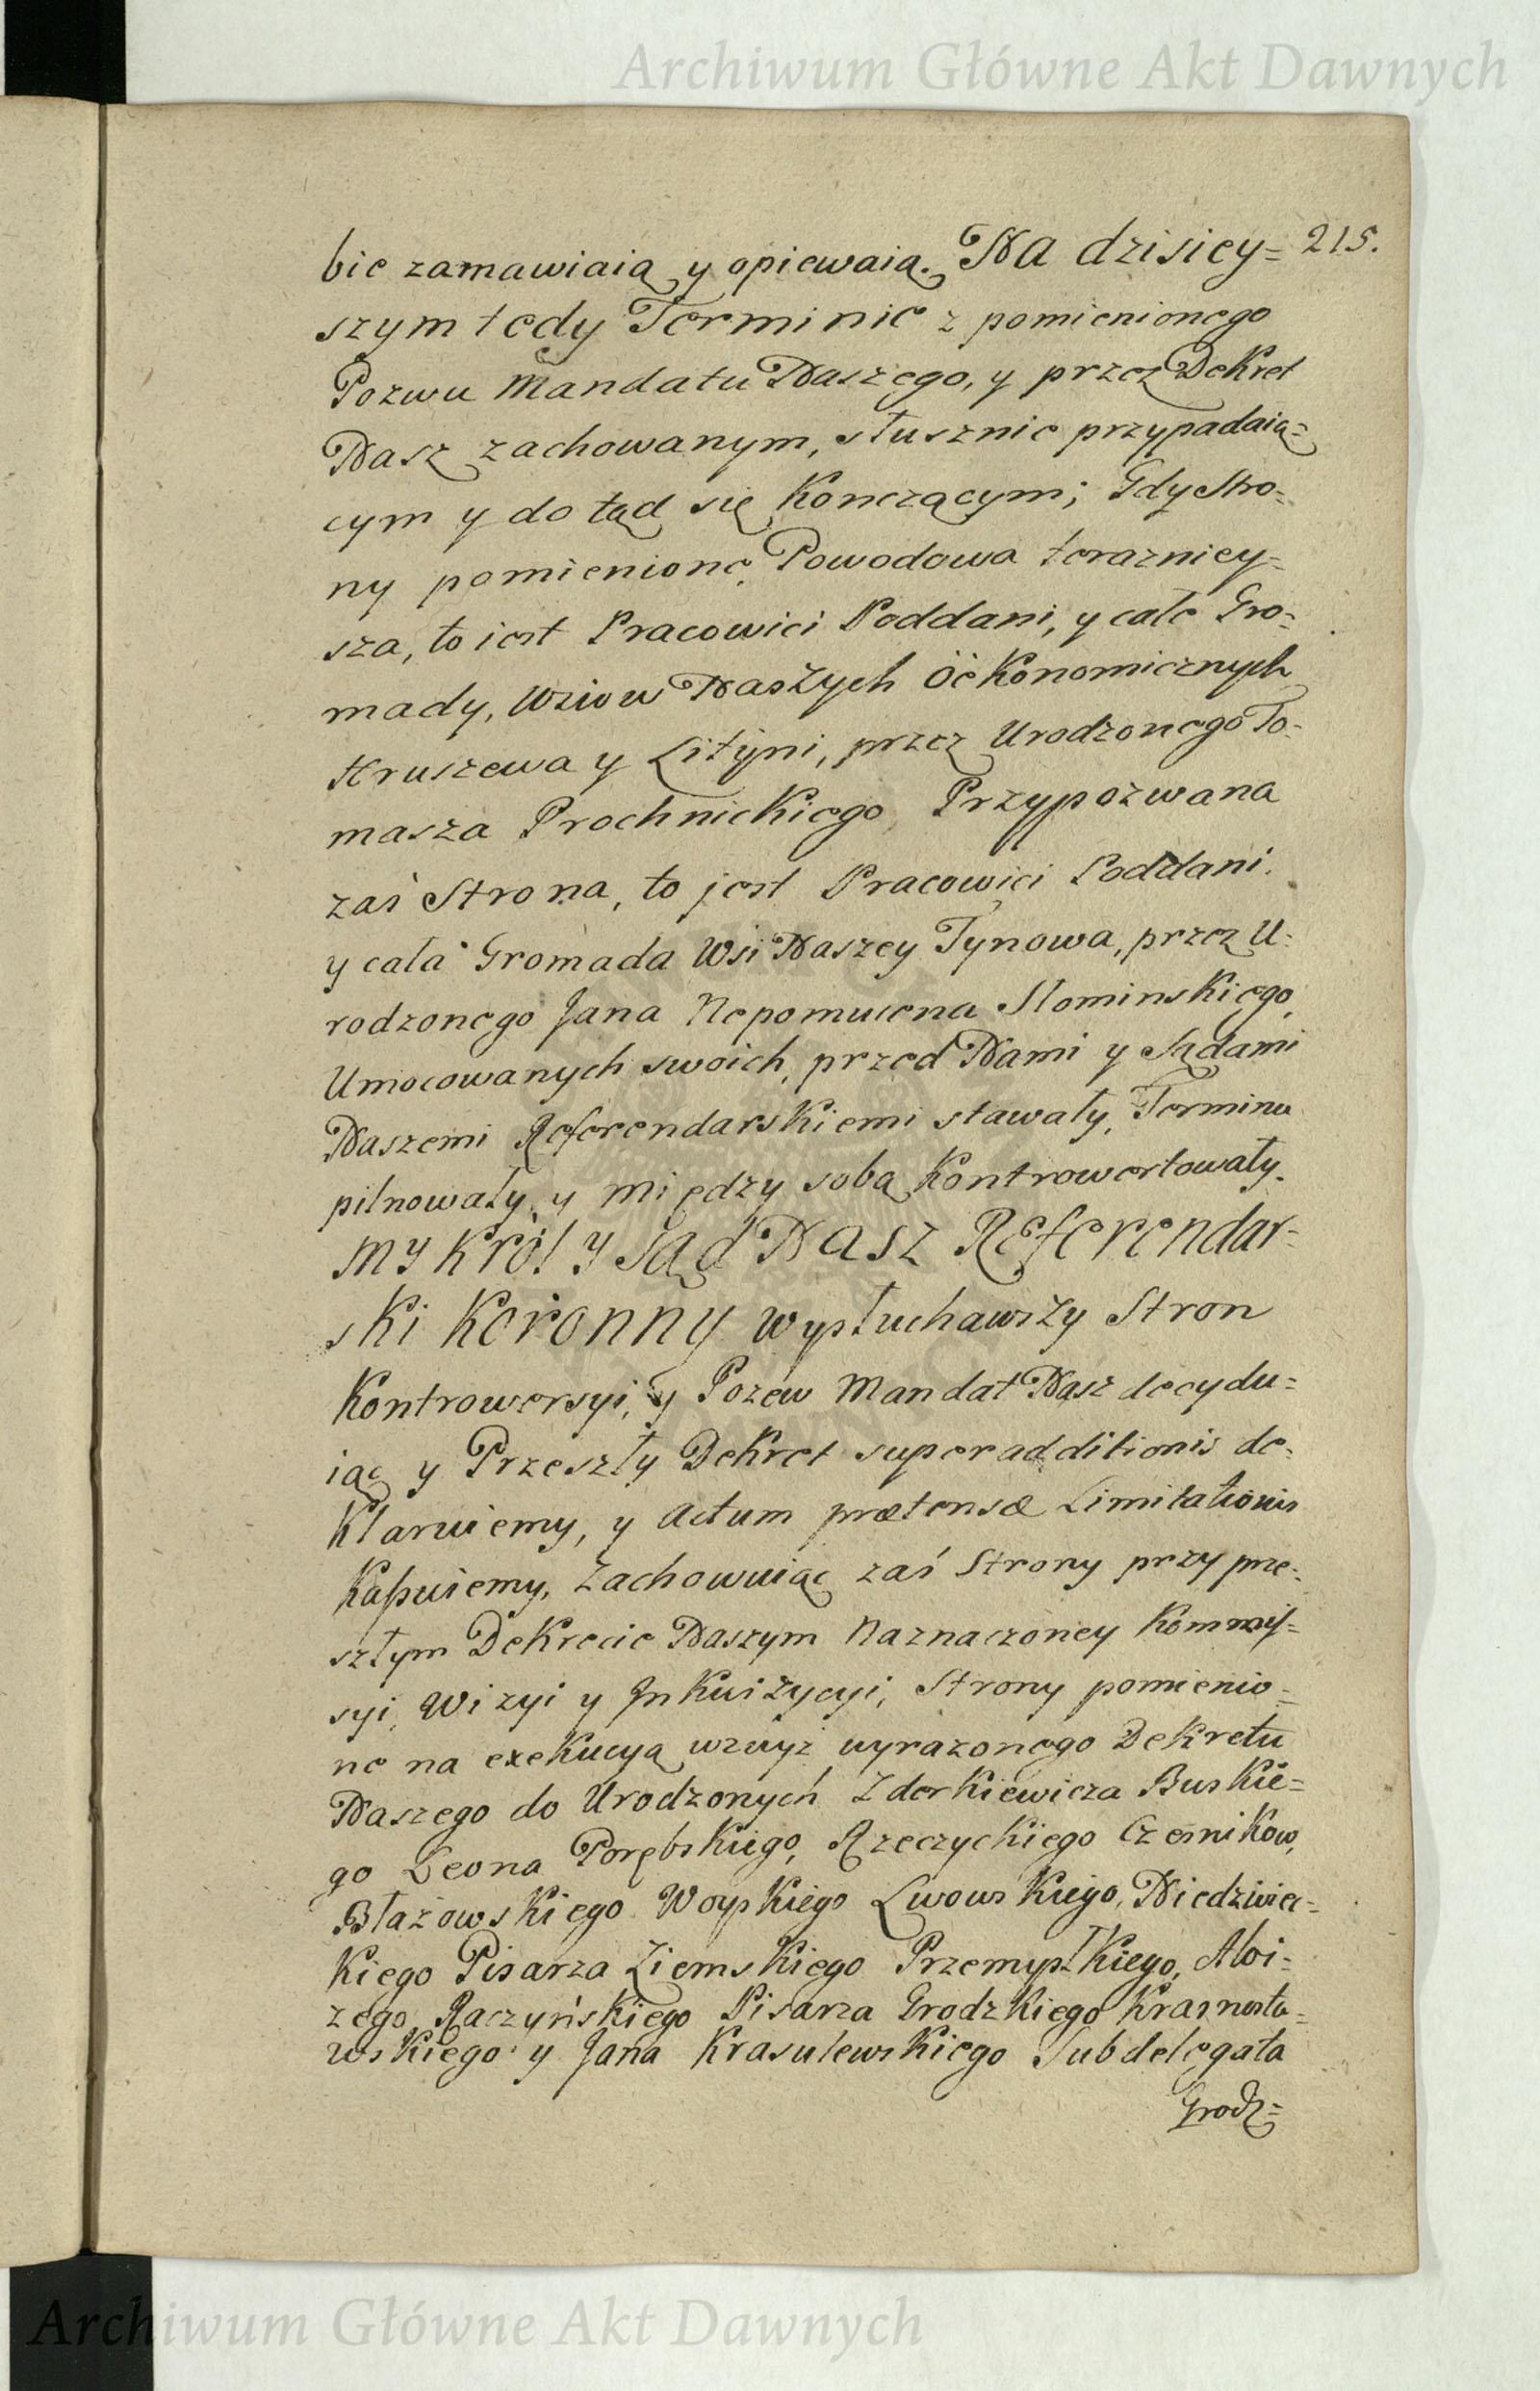 Archiwum Główne Akt Dawnych
215.
bie zamawiaią y opiewaią. Na dzisiey=
szym tedy Terminie z pomienionego
Pozwu Mandatu Naszego, y przez Dekret
Nasz zachowanym, słusznie przypadaią=
cym y do tąd się Konczącym; Gdy Stro=
ny pomienione Powodowa terazniey=
sza, to iest Pracowici Poddani, y całe Gro=
mady, Wsiow Naszych Oëkonomicznych
Hruszewa y Lityni, przez Urodzonego To=
masza Prochnickiego Przypozwana
zaś Strona, to jest Pracowici Poddani
y cała Gromada Wsi Naszey Tynowa, przez U=
rodzonego Jana Nepomucena Slominskiego
Umocowanych swoich, przed Nami y Sądami
Naszemi Referendarskiemi stawały, Terminu
pilnowały, y między sobą Kontrowertowały.
MY Król y Sąd Nasz Referendar=
ski Koronny wysłuchawszy Stron
Kontrowersyi, y Pozew Mandat Nasz decydu=
iąc y Przeszły Dekret superadditionis de=
klaruiemy, y Actum prætensæ Limitationis
Kassuiemy, Zachowuiąc zaś Strony przy prze=
szłym Dekrecie Naszym Naznaczoney Kommis=
syi, Wizyi y Inkwizycyi, Strony pomienio=
ne na exekucyą wzwyż wyrażonego Dekretu
Naszego do Urodzonych Zderkiewicza Buskie=
go Leona Porębskiego, Rzeczyckiego Czesnikow,
Błażowskiego Woyskiego Lwowskiego, Niedzwiec=
kiego Pisarza Ziemskiego Przemyslkiego, Aloi=
zego Raczyńskiego Pisarza Grodzkiego Krasnosta=
wskiego y Jana Krasulewskiego Subdelegata
Grodz=
Archiwum Główne Akt Dawnych